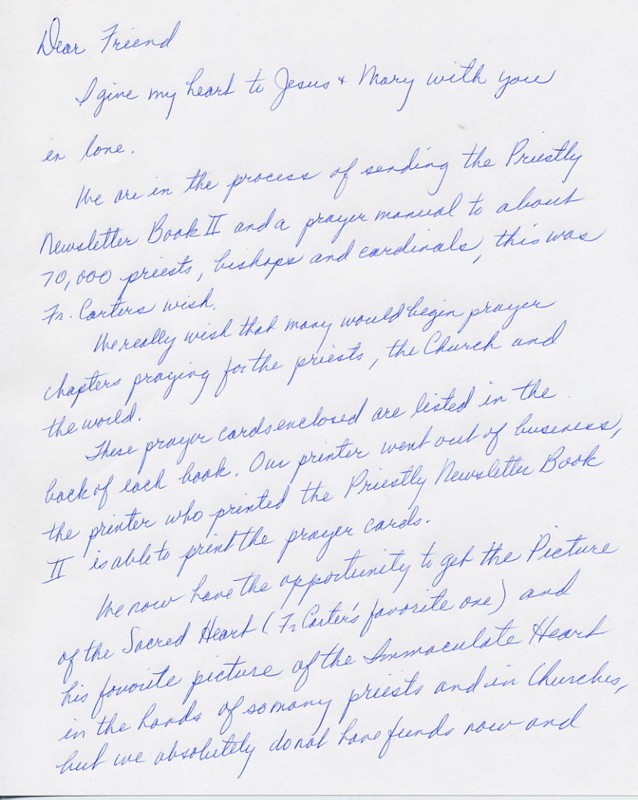 Dear Friend
I give my heart to Jesus & Mary with you
in love.
We are in the process of sending the Priestly
Newsletter Book II and a prayer manual to about
70,000 priests, bishops and cardinals, this was
Fr. Carters wish.
We really wish that many would begin prayer
chapters praying for the priests, the Church and
the world.
These prayer cards enclosed are listed in the
back of each book. Our printer went out of business,
the printer who printed the Priestly Newsletter Book
II is able to print the prayer cards.
We now have the opportunity to get the Picture
of the Sacred Heart (Fr Carter's favorite one) and
his favorite picture of the Immaculate Heart
in the hands of so many priests and in Churches,
but we absolutely do not have funds now and